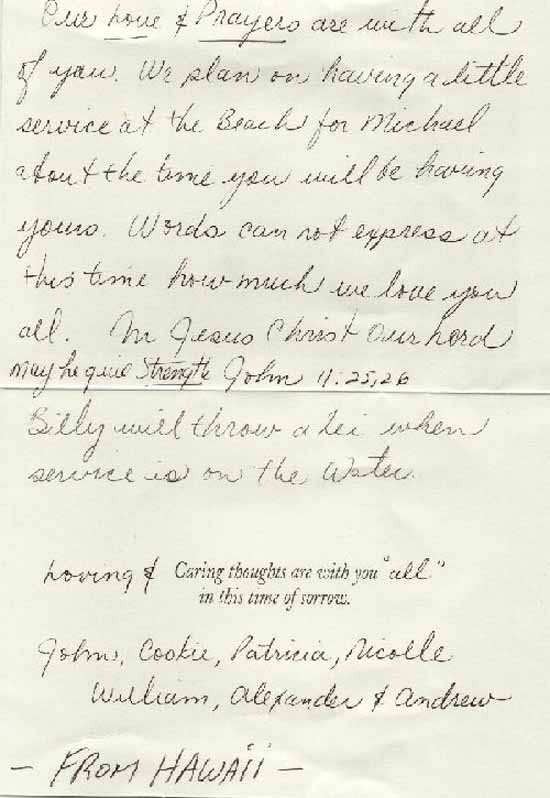 Our Love & Prayers are with all
of you. We plan on having a little
service at the Beach for Michael
about the time you will be having
yours. Words can not express at
this time how much we love you
all. In Jesus Christ Our Lord
May he give Strength John 11:25,26
Billy will throw a Lei when
service is on the Water.
Loving & Caring thoughts are with you "all"
in this time of sorrow.
John, Cookie, Patricia, Nicolle
William, Alexander & Andrew
— FROM HAWAii —